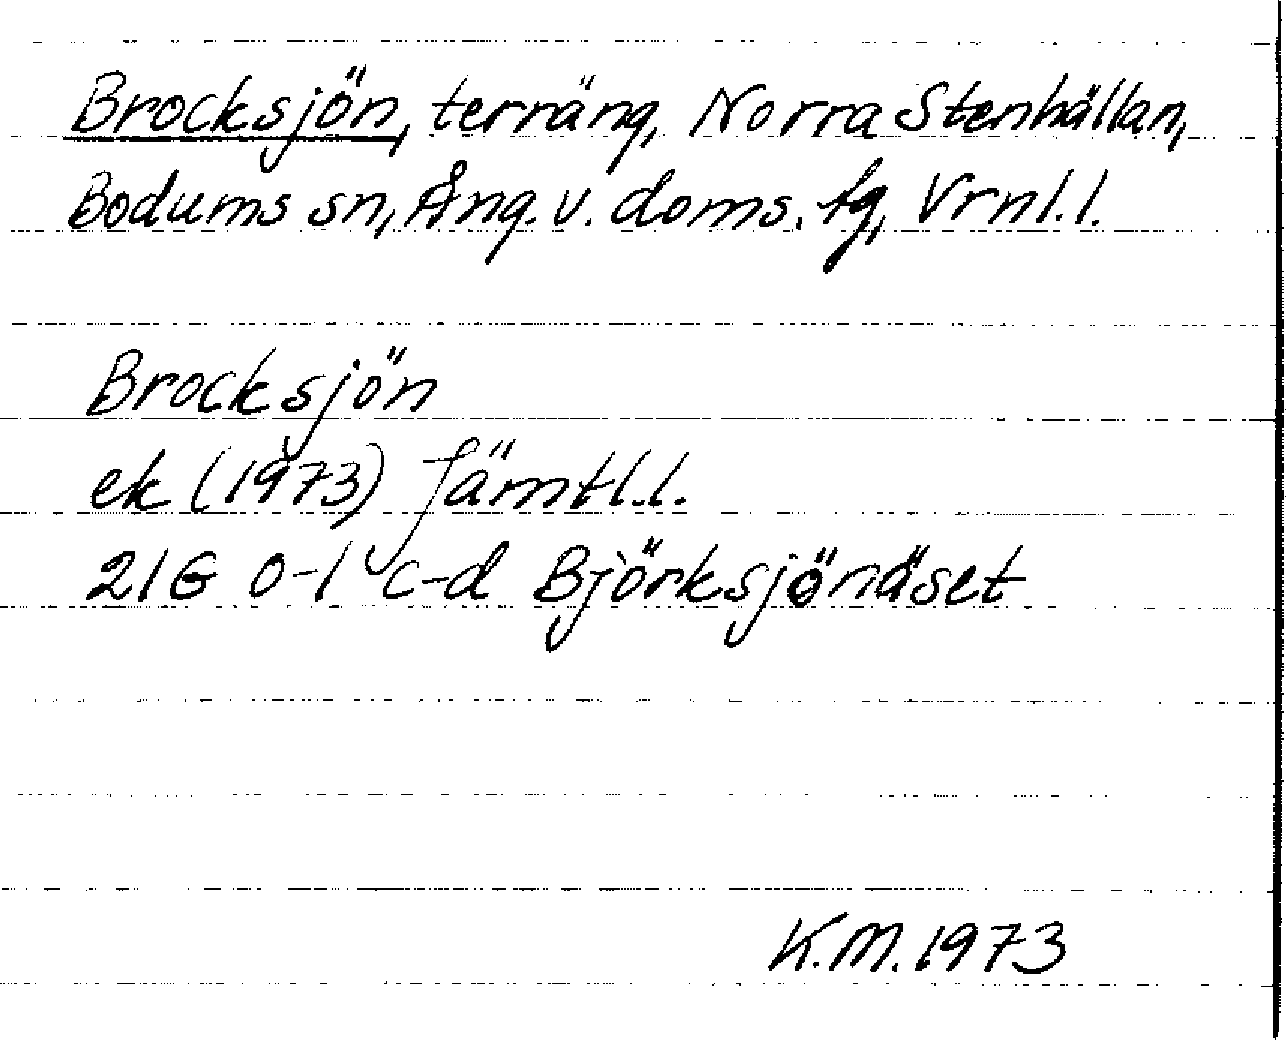 Brocksjön, terräng, Norra Stenhällan,
Bodums sn, Ång. v. doms. tg, Vrnl. l.
Brocksjön
ek (1973) Jämtl. l.
21G 0-1 c-d Björksjönäset
K.M. 1973